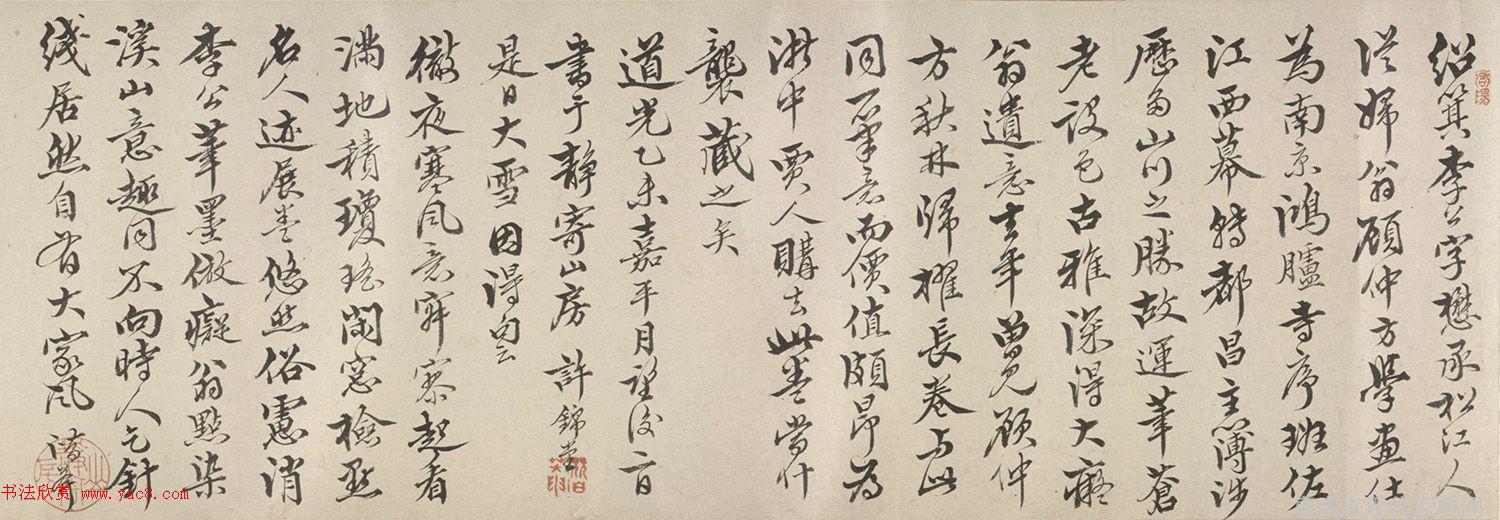 绍箕李公字懋承松江人
從婦翁顾仲方學画仕
為南京鴻臚寺序班佐
江西幕轉都昌主薄涉
歷多山川之勝故運筆蒼
老設色古雅深得大癡
翁遺意去年曽見顾仲
方秋林歸櫂長卷与此
同一筆意而價值頗昂为
浙中賈人購去此卷當什
襲藏之矣
道光乙未嘉平月望後一日
書于静寄山房 許錦堂
是日大雪因得句云
徹夜寒风意寂寥起看
满地積瓊瑶閑窓檢點
名人迹展卷悠然俗慮消
李公筆墨倣癡翁點染
溪山意趣同不向時人乞針
线居然自有大家风
书法欣赏 www.yac8.com